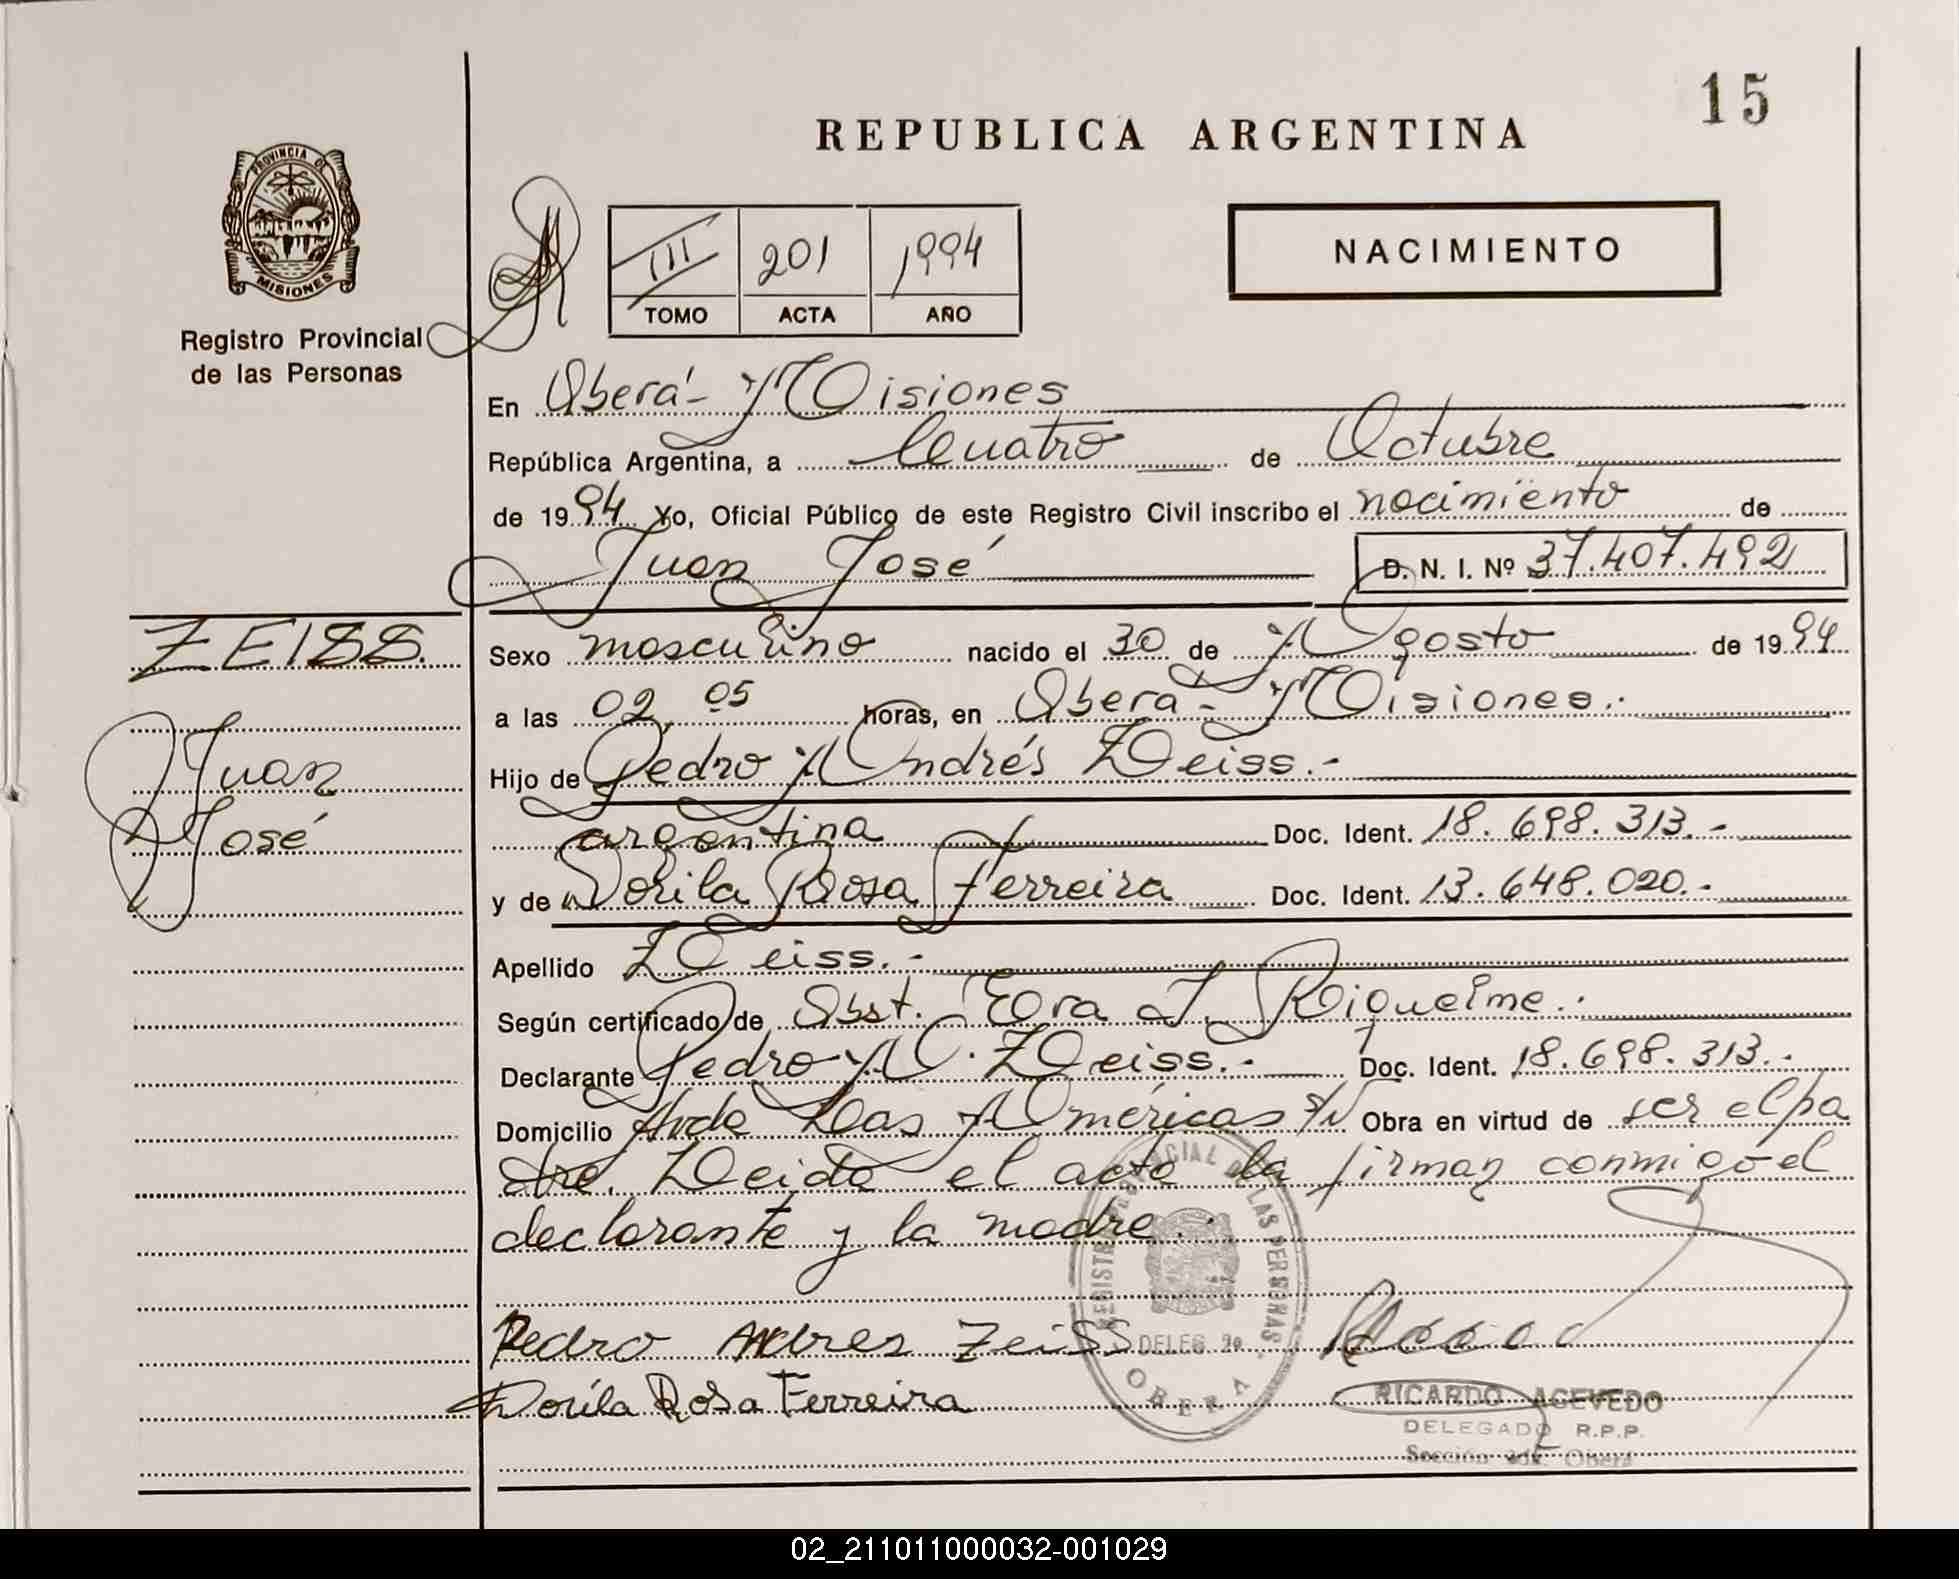 15
REPUBLICA ARGENTINA
PROVINCIA DE
MISIONES
Registro Provincial
de las Personas
III 201 1994
TOMO ACTA AÑO
NACIMIENTO
En Oberá - Misiones
República Argentina, a Cuatro de Octubre
de 1994 Yo, Oficial Público de este Registro Civil inscribo el nacimiento de
Juan José D. N. I. Nº 37.407.492
ZEISS.
Juan
José
Sexo masculino nacido el 30 de Agosto de 1994
a las 02,05 horas, en Oberá - Misiones.
Hijo de Pedro Andrés Zeiss.-
argentina Doc. Ident. 18.698.313.-
y de Dorila Rosa Ferreira Doc. Ident. 13.648.020.-
Apellido Zeiss.-
Según certificado de Obst. Eva J. Riquelme.
Declarante Pedro A. Zeiss.- Doc. Ident. 18.698.313.-
Domicilio Avda Las Américas s/N Obra en virtud de ser el pa
dre. Leida el acta la firman conmigo el
declarante y la madre.
Pedro Andres Zeiss
Dorila Rosa Ferreira
REGISTRO PROVINCIAL DE LAS PERSONAS
DELEG.
OBERA
RICARDO ACEVEDO
DELEGADO R.P.P.
Sección Oberá
02_211011000032-001029